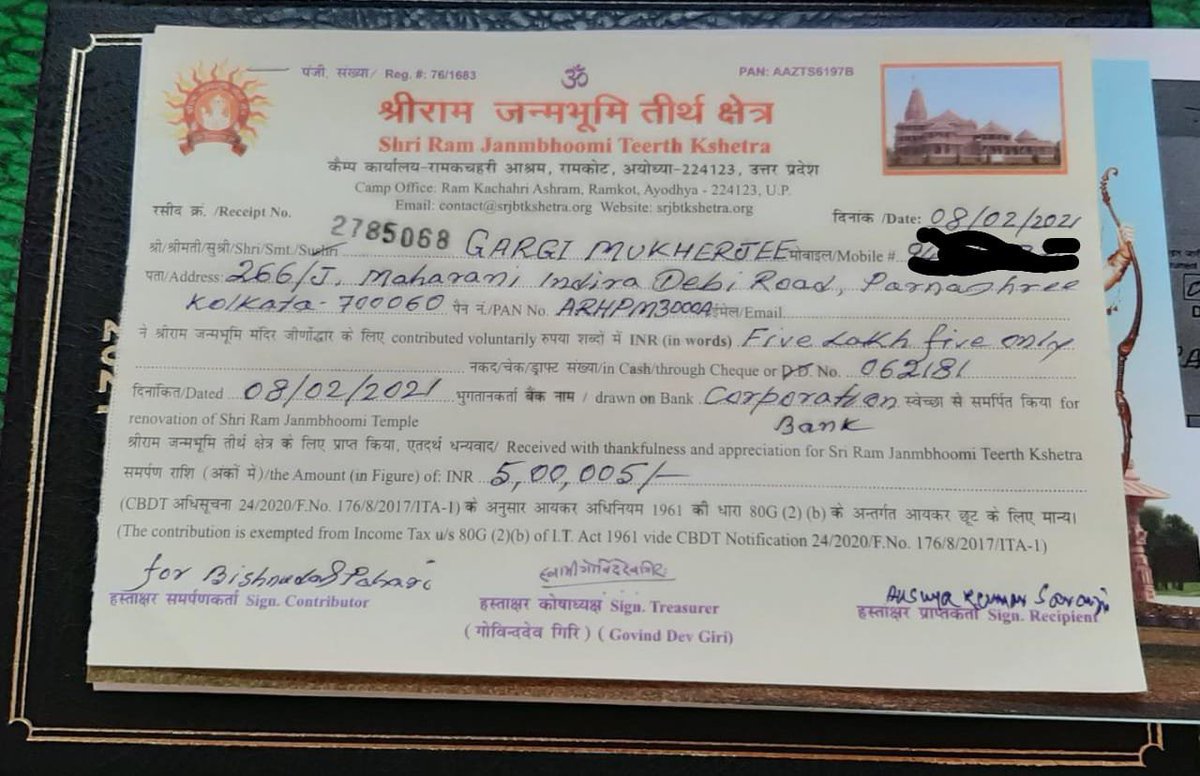 पंजी. संख्या/ Reg. #: 76/1683 ॐ PAN: AAZTS6197B
श्रीराम जन्मभूमि तीर्थ क्षेत्र
Shri Ram Janmbhoomi Teerth Kshetra
कैम्प कार्यालय-रामकचहरी आश्रम, रामकोट, अयोध्या-224123, उत्तर प्रदेश
Camp Office: Ram Kachahri Ashram, Ramkot, Ayodhya - 224123, U.P.
Email: contact@srjbtkshetra.org Website: srjbtkshetra.org
रसीद क्र. /Receipt No. 2785068 दिनांक /Date: 08/02/2021
श्री/श्रीमती/सुश्री/Shri/Smt./Sushri GARGI MUKHERJEE मोबाइल/Mobile #.
पता/Address: 266/J, Maharani Indira Debi Road, Parnashree
Kolkata-700060 पैन नं./PAN No. ARHPM3000A ईमेल/Email
ने श्रीराम जन्मभूमि मंदिर जीर्णोद्धार के लिए contributed voluntarily रुपया शब्दों में INR (in words) Five Lakh five only
नकद/चेक/ड्राफ्ट संख्या/in Cash/through Cheque or D.D. No. 062181
दिनांकित/Dated 08/02/2021 भुगतानकर्ता बैंक नाम / drawn on Bank Corporation स्वेच्छा से समर्पित किया for
renovation of Shri Ram Janmbhoomi Temple Bank
श्रीराम जन्मभूमि तीर्थ क्षेत्र के लिए प्राप्त किया, एतदर्थ धन्यवाद/ Received with thankfulness and appreciation for Sri Ram Janmbhoomi Teerth Kshetra
समर्पण राशि (अंकों में)/the Amount (in Figure) of: INR 5,00,005/-
(CBDT अधिसूचना 24/2020/F.No. 176/8/2017/ITA-1) के अनुसार आयकर अधिनियम 1961 की धारा 80G (2) (b) के अन्तर्गत आयकर छूट के लिए मान्य।
(The contribution is exempted from Income Tax u/s 80G (2)(b) of I.T. Act 1961 vide CBDT Notification 24/2020/F.No. 176/8/2017/ITA-1)
for Bishnudas Pahari स्वामी गोविन्ददेव गिरि Kumar
हस्ताक्षर समर्पणकर्ता Sign. Contributor हस्ताक्षर कोषाध्यक्ष Sign. Treasurer हस्ताक्षर प्राप्तकर्ता Sign. Recipient
( गोविन्ददेव गिरि ) ( Govind Dev Giri)